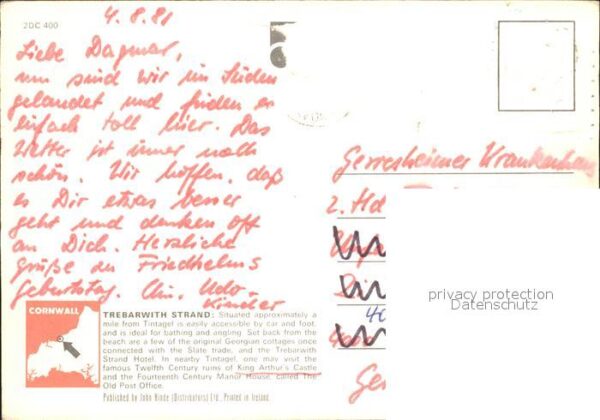 4.8.81
2DC 400
Liebe Dagmar,
nun sind wir im Süden
gelandet und finden es
einfach toll hier. Das
Wetter ist immer noch
schön. Wir hoffen, daß
es Dir etwas besser
geht und denken oft
an Dich. Herzliche
Grüße zu Friedhelms
Geburtstag. Udo
Kinder
Gerresheimer Krankenhaus
2.
privacy protection
Datenschutz
CORNWALL
TREBARWITH STRAND: Situated approximately a
mile from Tintagel is easily accessible by car and foot,
and is ideal for bathing and angling. Set back from the
beach are a few of the original Georgian cottages once
connected with the Slate trade, and the Trebarwith
Strand Hotel. In nearby Tintagel, one may visit the
famous Twelfth Century ruins of King Arthur's Castle
and the Fourteenth Century Manor House, called The
Old Post Office.
Published by John Hinde (Distributors) Ltd. Printed in Ireland